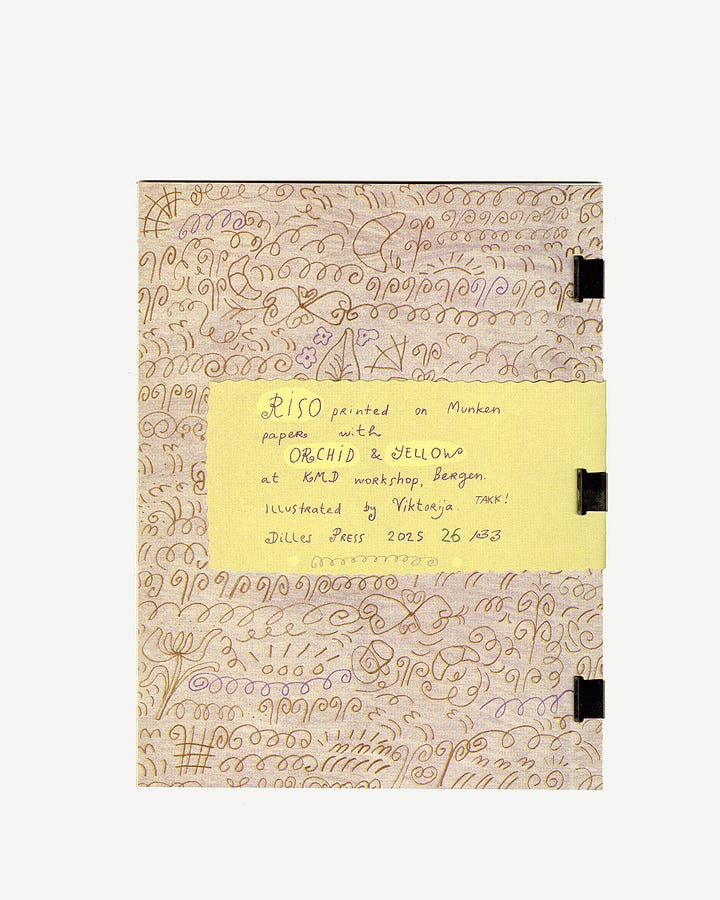 RISO printed on Munken
paper with
ORCHID & YELLOW
at KMD workshop, Bergen.
ILLUStrated by Viktorija. TAKK!
DiLLes PRESS 2025 26/133